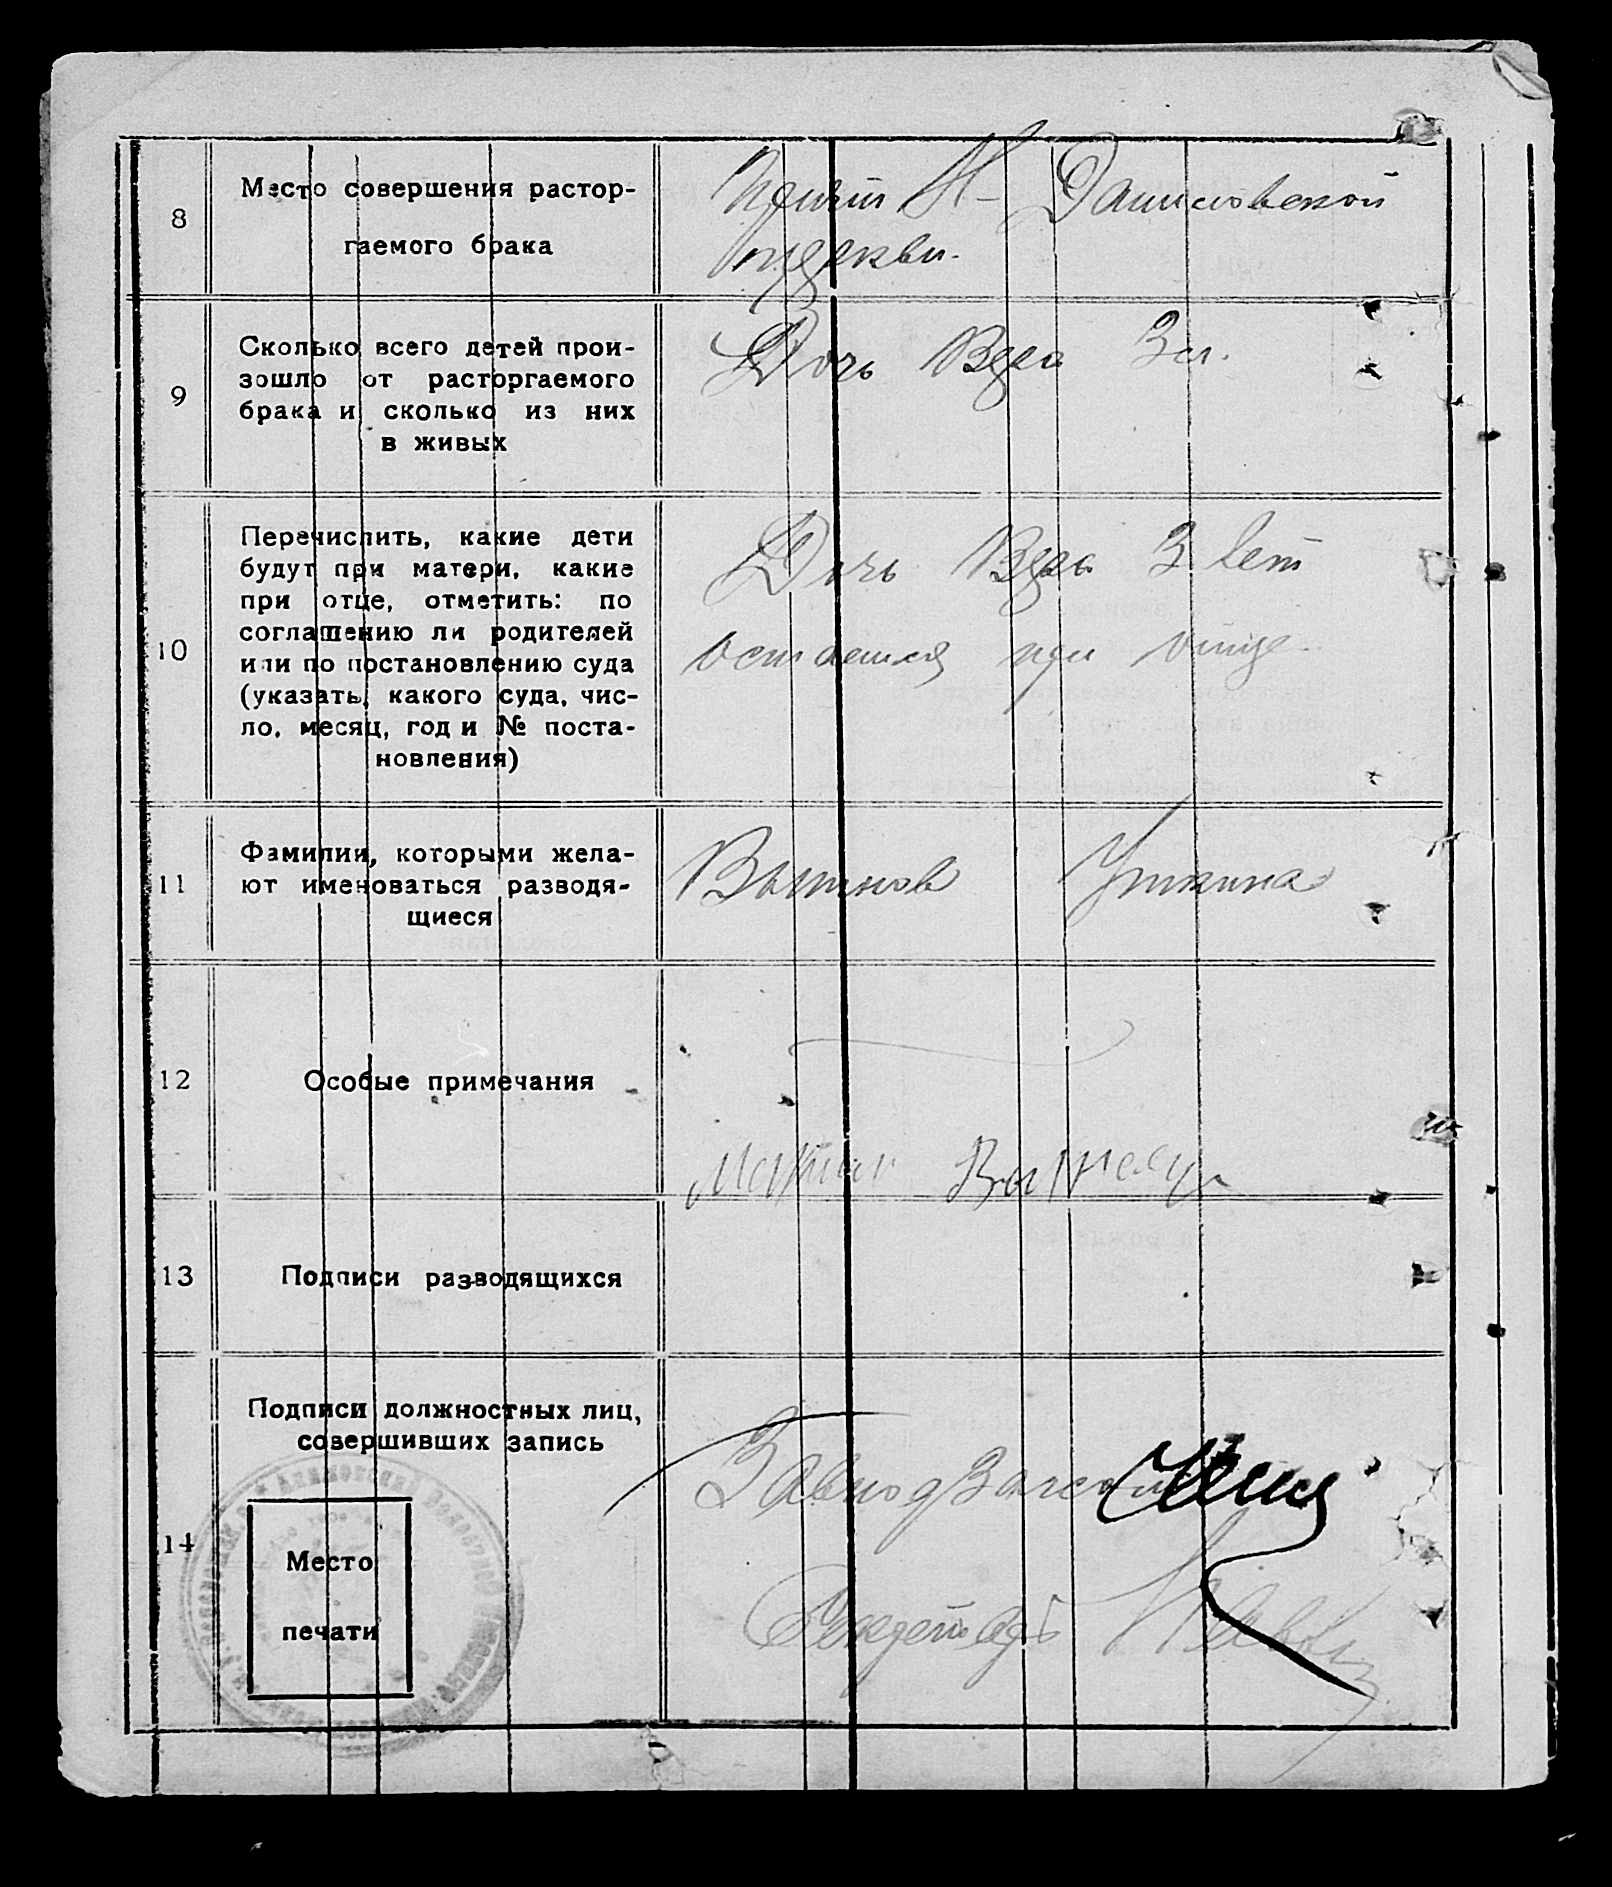 8
Место совершения растор-
гаемого брака
Причт Н- Даниловской
церкви.
9
Сколько всего детей прои-
зошло от расторгаемого
брака и сколько из них
в живых
Дочь Вера 3 л.
10
Перечислить, какие дети
будут при матери, какие
при отце, отметить: по
соглашению ли родителей
или по постановлению суда
(указать, какого суда, чис-
ло, месяц, год и № поста-
новления)
Дочь Вера 3 лет
остается при отце.
11
Фамилии, которыми жела-
ют именоваться разводя-
щиеся
Вытнов Уткина
12
Особые примечания
13
Подписи разводящихся
14
Подписи должностных лиц,
совершивших запись
Завподзагсом
Место
печати